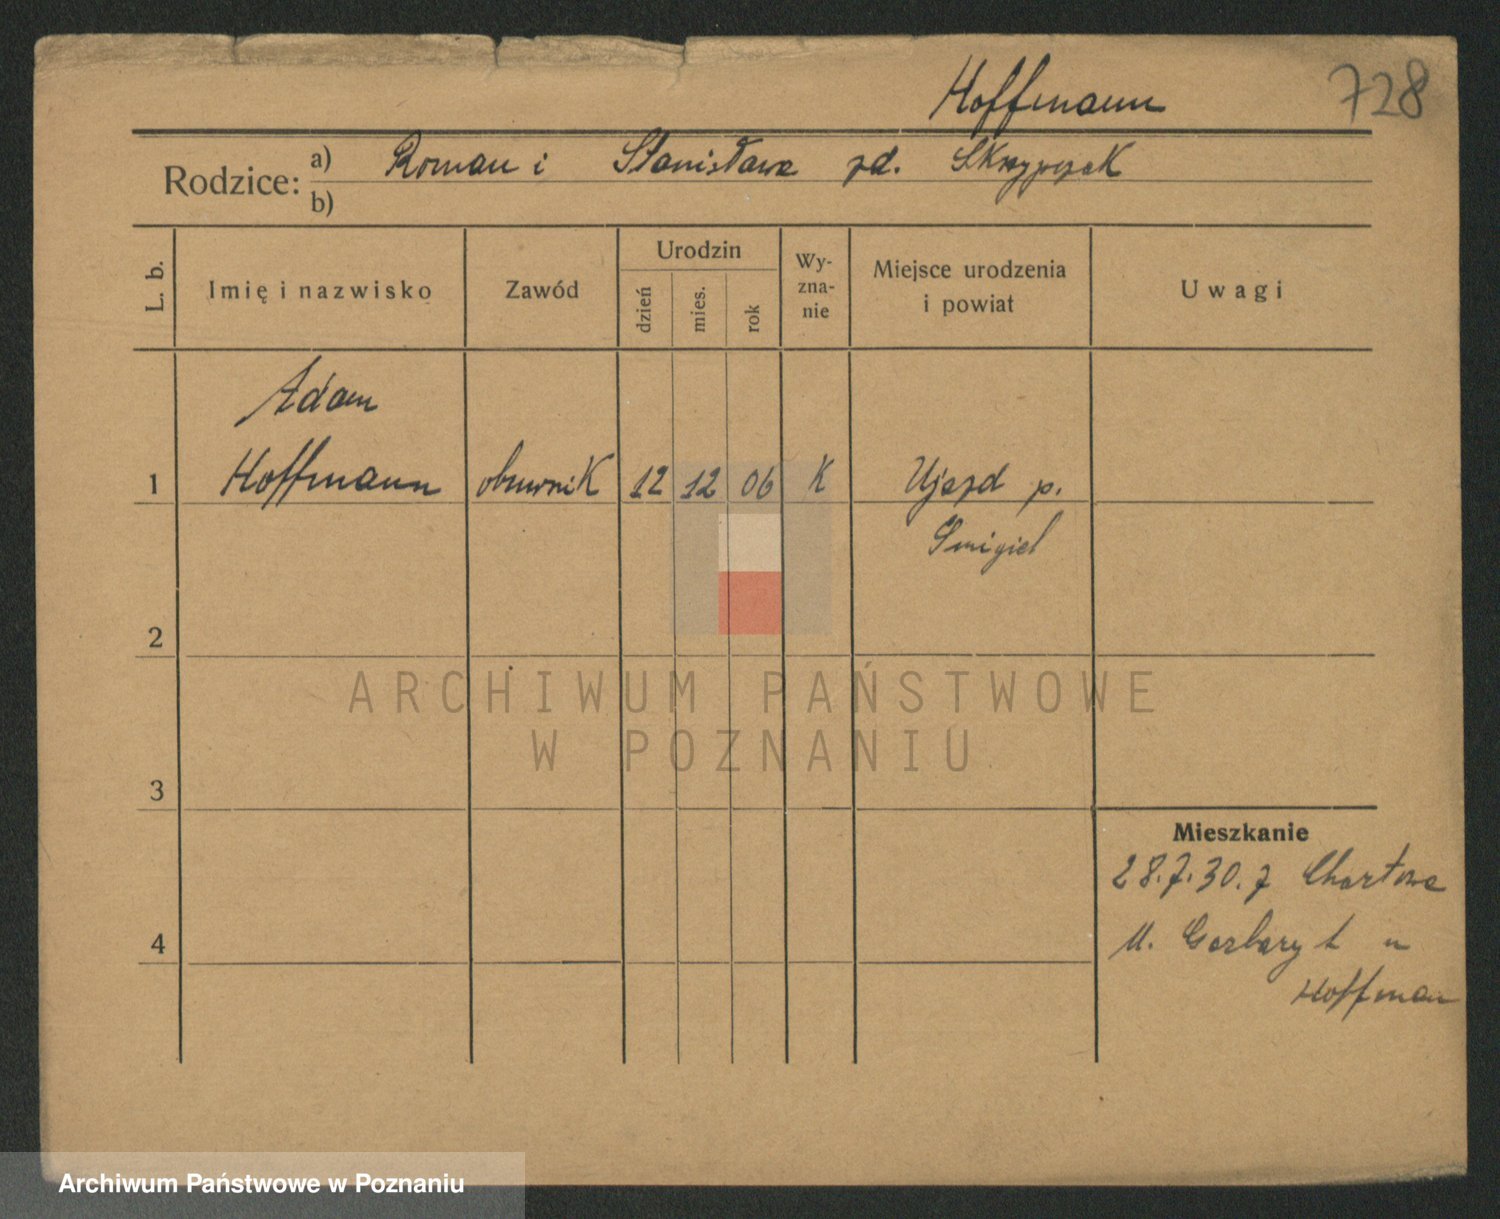 Hoffmann
728
Rodzice: a) Roman i Stanisława zd. Skrzypczak
b)
L. b.
Imię i nazwisko
Zawód
Urodzin
dzień
mies.
rok
Wy-
zna-
nie
Miejsce urodzenia
i powiat
Uwagi
Adam
1 Hoffmann obuwnik 12 12 06 K Ujazd p.
Smigiel
2
3
4
Mieszkanie
28.7.30. z Chartowa
M. Garbary 1 u
Hoffman
ARCHIWUM PAŃSTWOWE
W POZNANIU
Archiwum Państwowe w Poznaniu